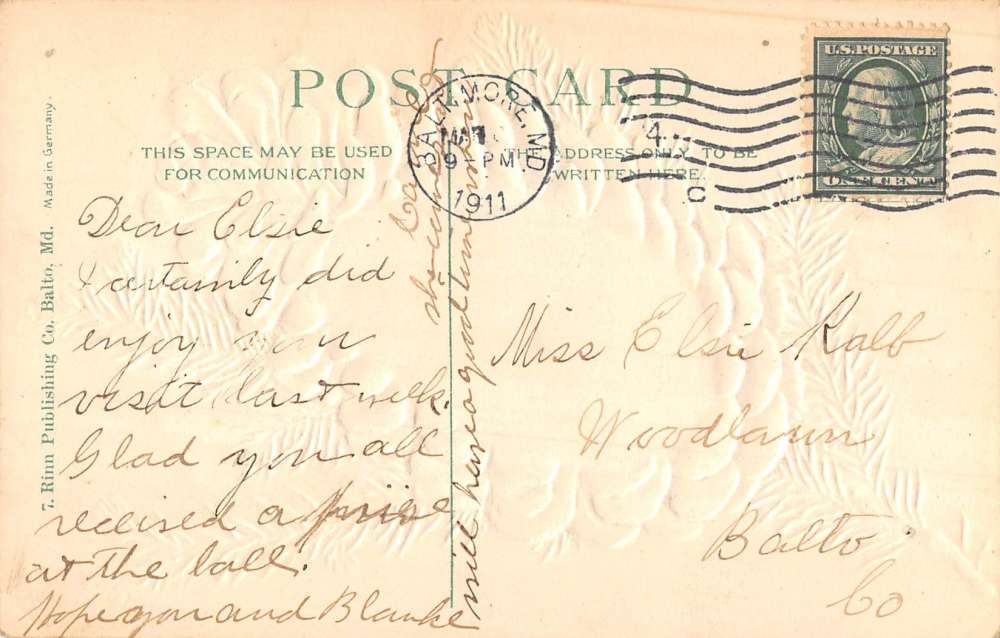 POST CARD
THIS SPACE MAY BE USED
FOR COMMUNICATION
THE ADDRESS ONLY TO BE
WRITTEN HERE.
BALTIMORE, MD.
MAR
9 - PM
1911
4
C
U.S. POSTAGE
ONE CENT
7. Rinn Publishing Co. Balto, Md. Made in Germany.
Dear Elsie
I certainly did
enjoy your
visit last week.
Glad you all
received a prize
at the ball.
Hope you and Blanche
will have a good time
Miss Elsie Kalb
Woodlawn
Balto
Co